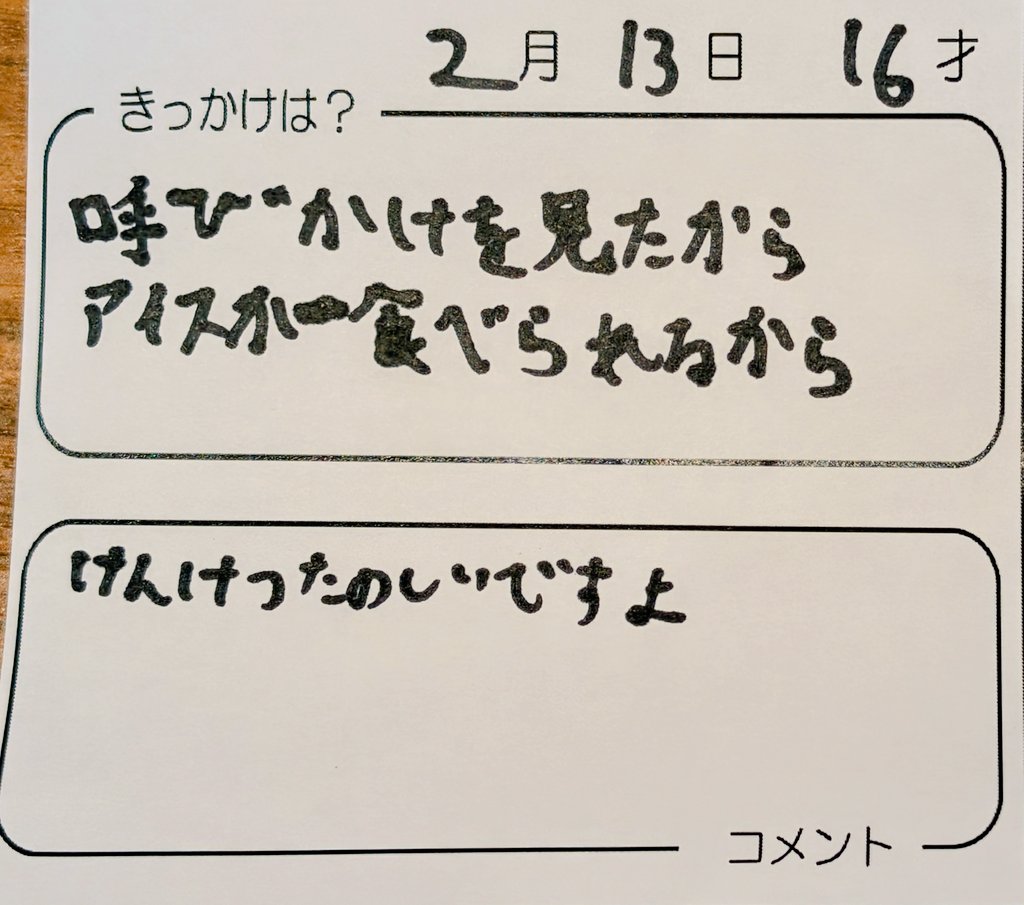 2月 13日 16才
きっかけは？
呼びかけを見たから
アイスが食べられるから
けんけつたのしいですよ
コメント